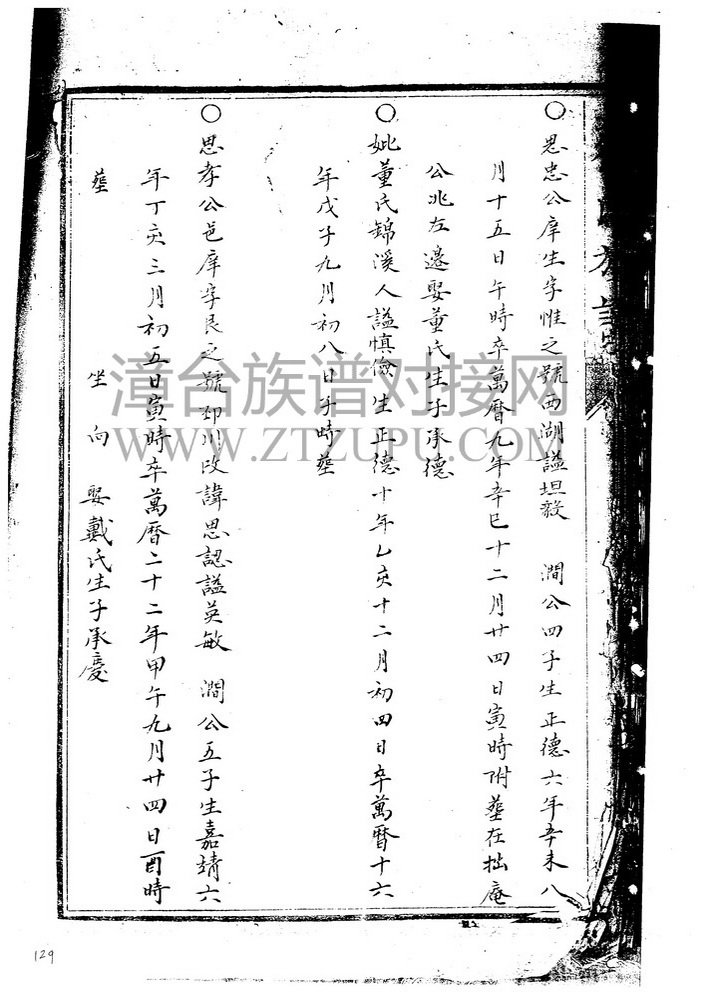 ○思忠公庠生字惟之號西湖謚坦毅 澗公四子生正德六年辛未八
月十五日午時卒萬曆九年辛巳十二月廿四日寅時附塟在拙庵
公兆左邊娶董氏生子承德
○妣董氏錦溪人謚慎儉生正德十年乙亥十二月初四日卒萬曆十六
年戊子九月初八日子時塟
○思孝公邑庠字艮之號印川改諱思認謚英敏 澗公五子生嘉靖六
年丁亥三月初五日寅時卒萬曆二十二年甲午九月廿四日酉時
塟 坐 向 娶戴氏生子承慶
漳台族谱对接网
WWW.ZTZUPU.COM
129